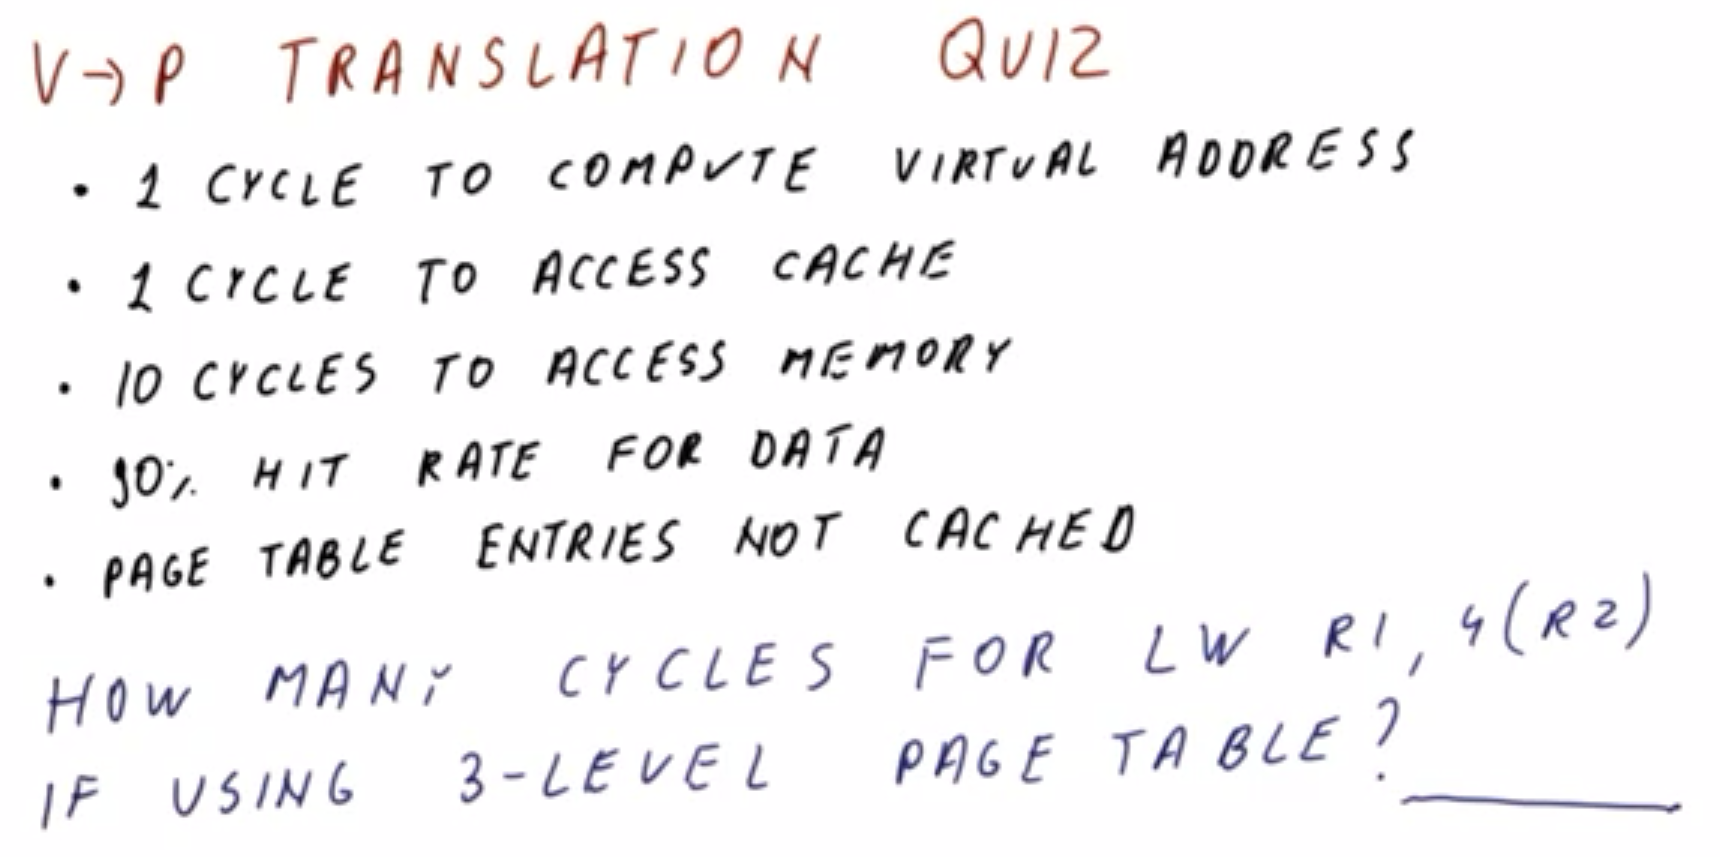 V→P TRANSLATION QUIZ
• 1 CYCLE TO COMPUTE VIRTUAL ADDRESS
• 1 CYCLE TO ACCESS CACHE
• 10 CYCLES TO ACCESS MEMORY
• 90% HIT RATE FOR DATA
• PAGE TABLE ENTRIES NOT CACHED
HOW MANY CYCLES FOR LW R1, 4(R2)
IF USING 3-LEVEL PAGE TABLE? ______